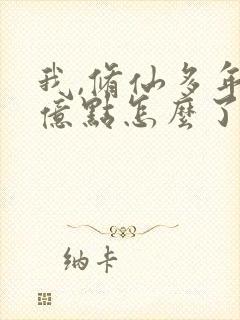 我,脩仙多年
億點怎麼了
纳卡